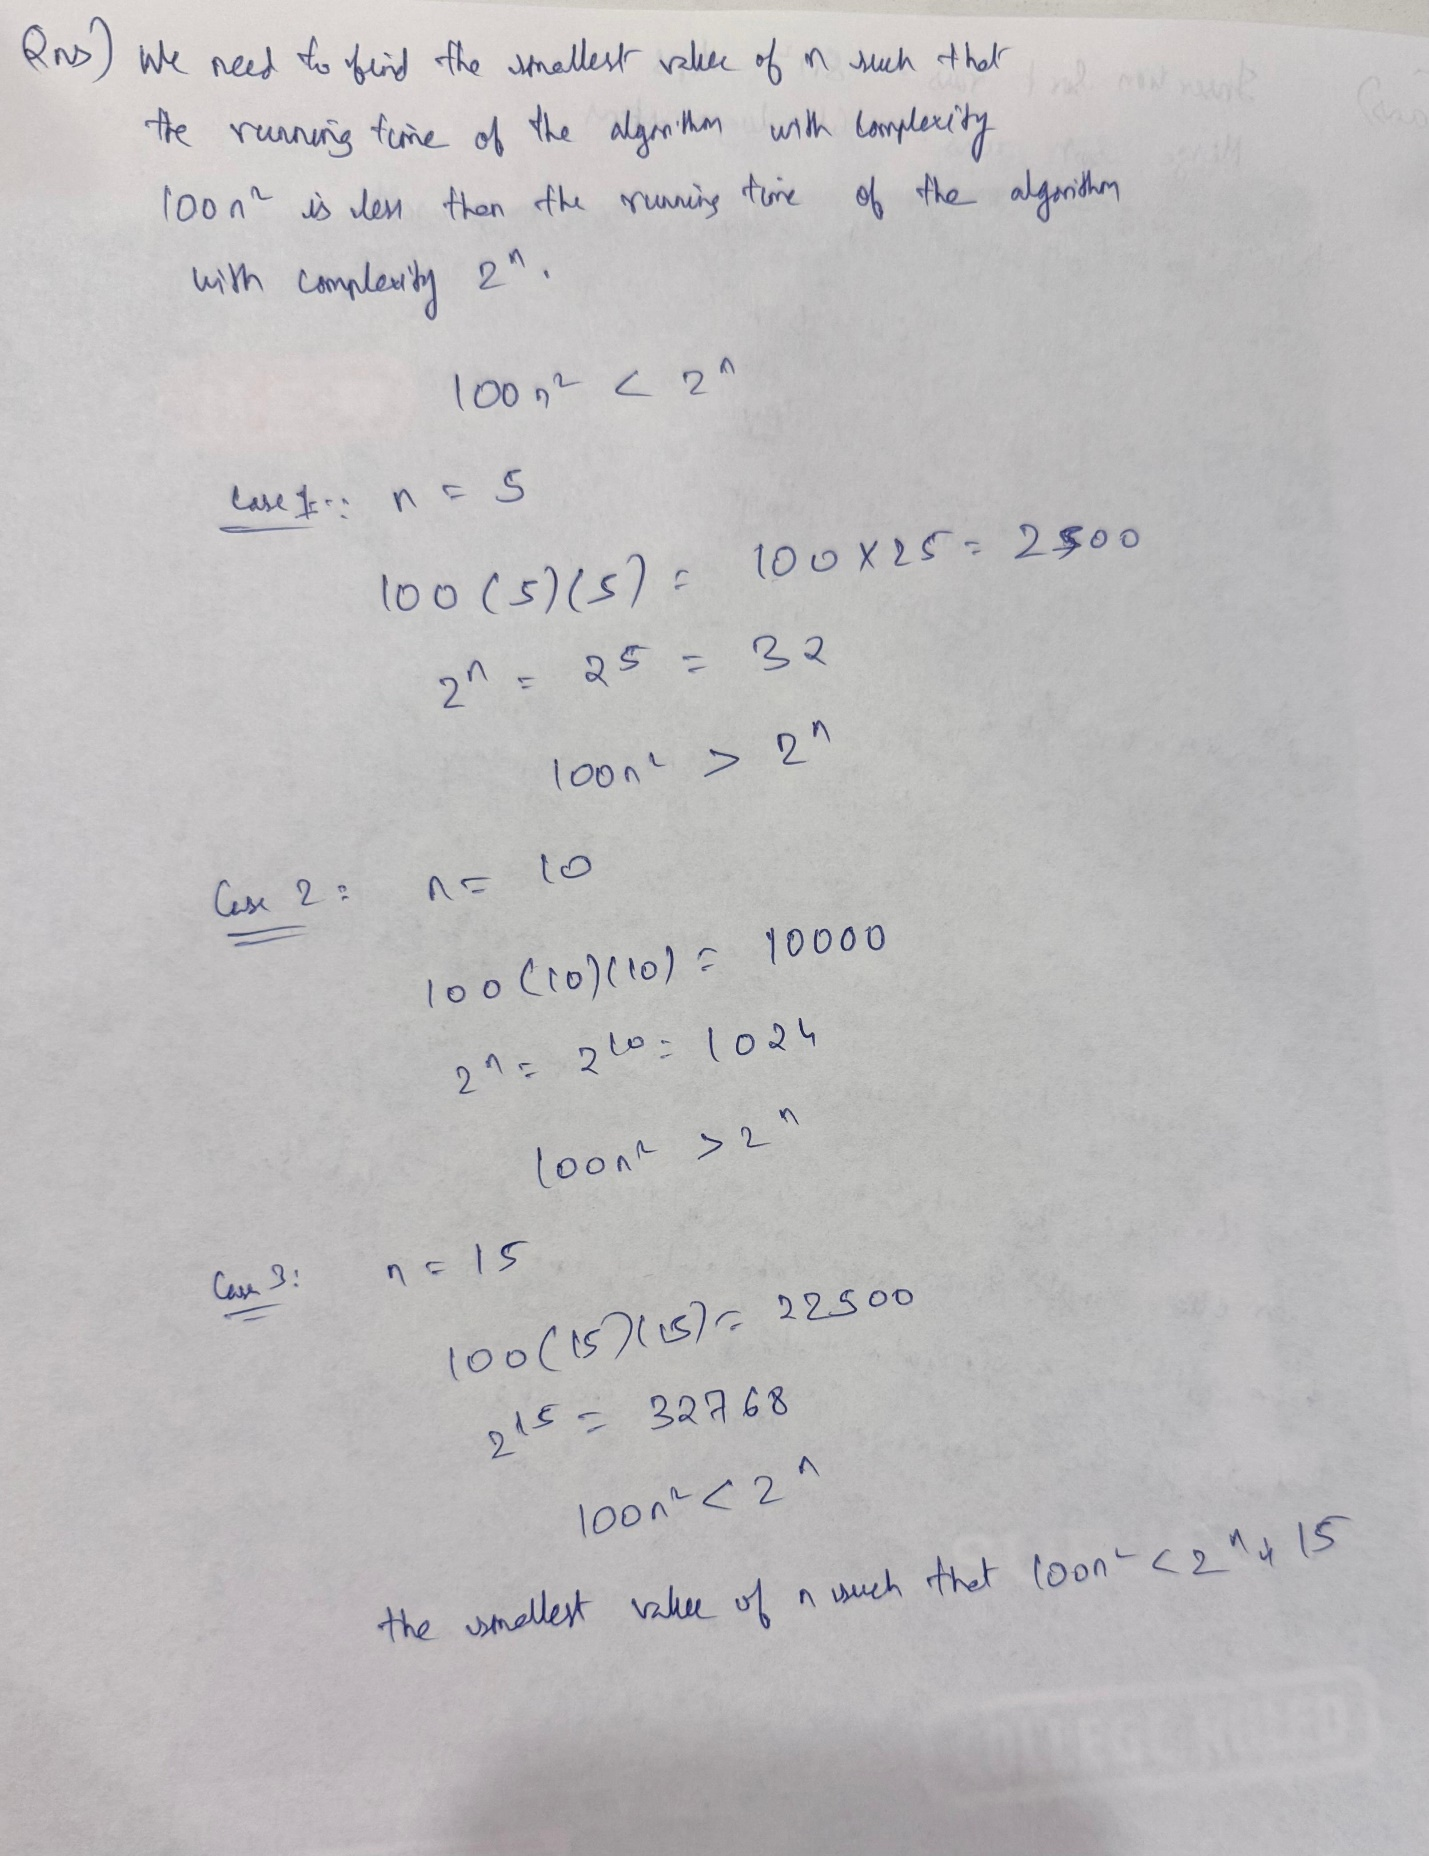 Ans) We need to find the smallest value of n such that
the running time of the algorithm with complexity
100n² is less than the running time of the algorithm
with complexity 2ⁿ.
100n² < 2ⁿ
Case 1: n = 5
100 (5)(5) = 100 X 25 = 2500
2ⁿ = 2⁵ = 32
100n² > 2ⁿ
Case 2: n = 10
100 (10)(10) = 10000
2ⁿ = 2¹⁰ = 1024
100n² > 2ⁿ
Case 3: n = 15
100(15)(15) = 22500
2¹⁵ = 32768
100n² < 2ⁿ
the smallest value of n such that 100n² < 2ⁿ is 15